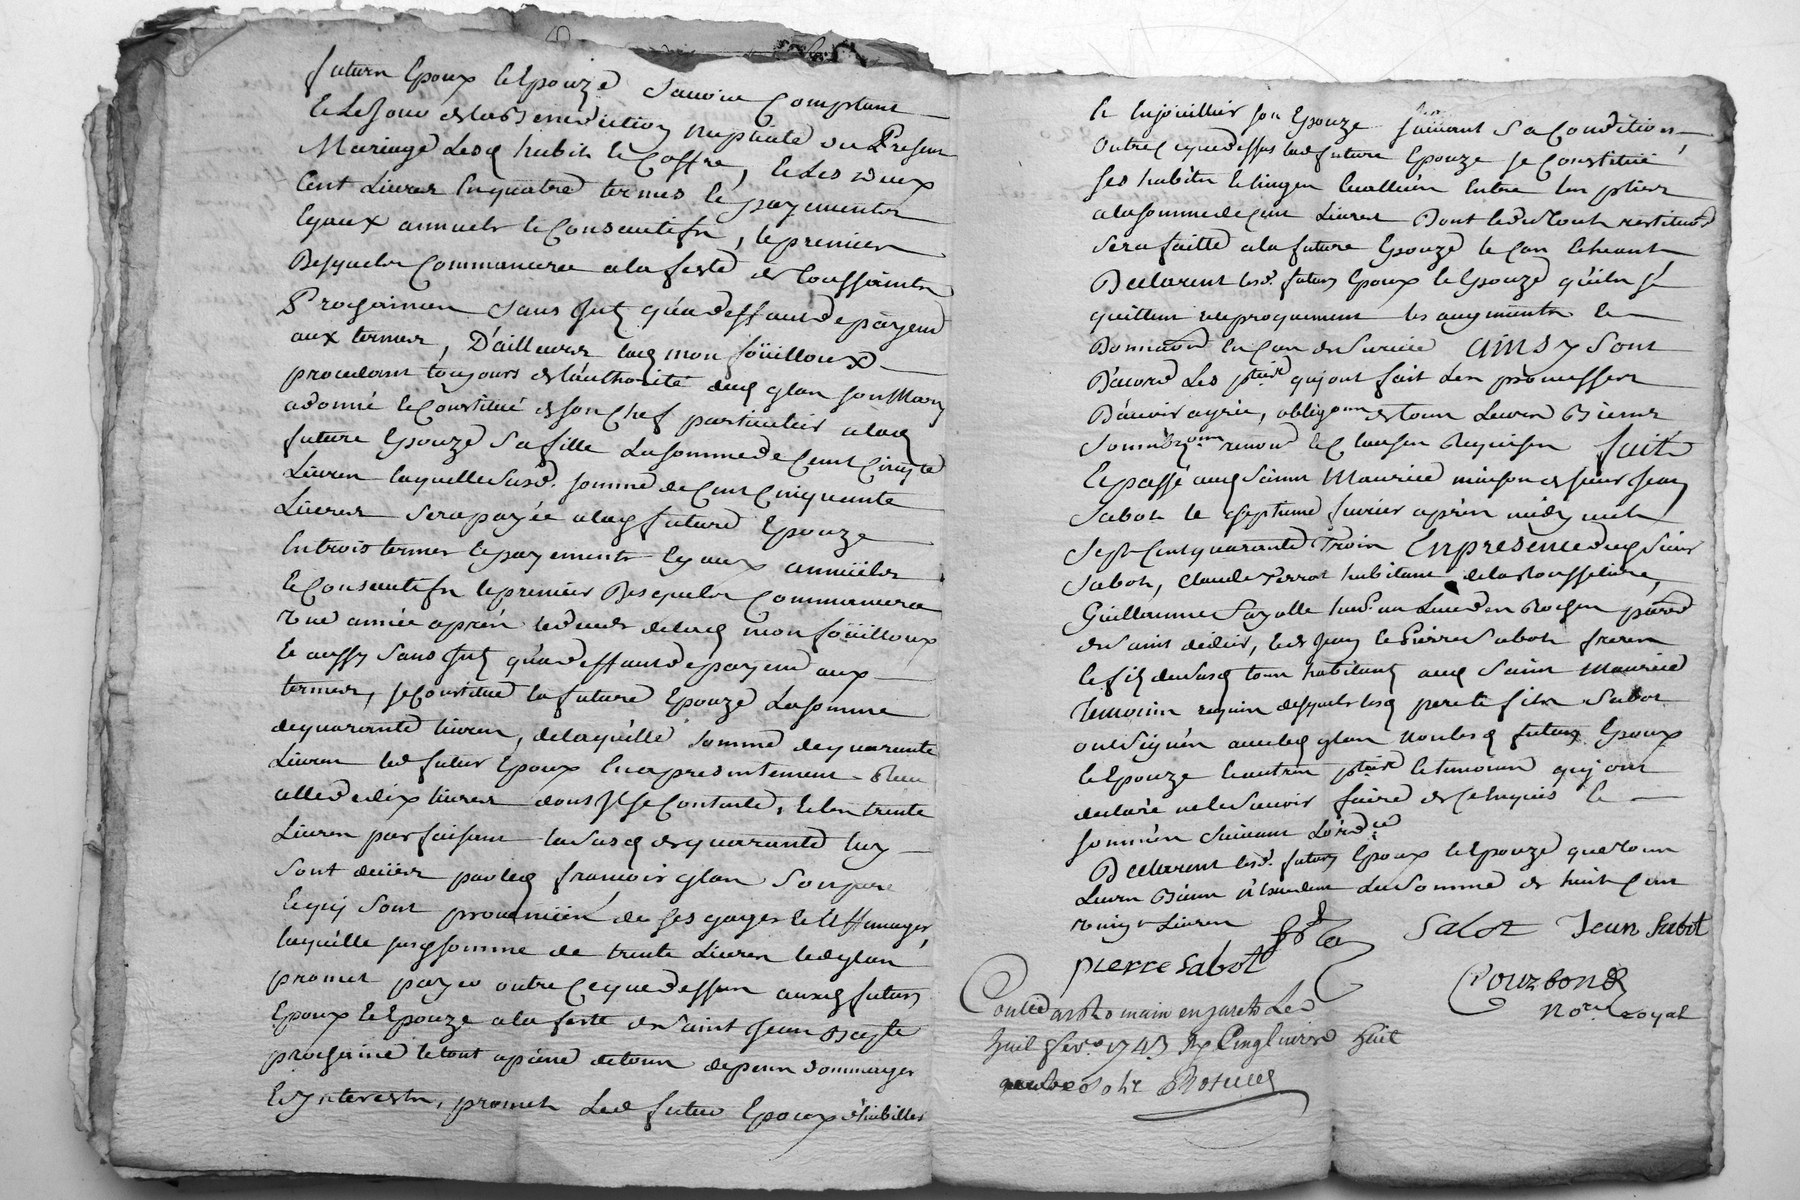 futurs Epoux et Epouze Sauoir Comptant
Et Le Jour de la Benediction Nuptiale du Present
Mariage Lesd habits et Coffre, et Les deux
Cent Liures En quatre termes et payements
Egaux annuels et Consecutifs, le premier
Desquels Commancera a la feste de toussaints
Prochaines Sans Jnt qu'a deffaut de payem
aux termes, D'ailleurs lad mon foüilloux
procedant toujours de l'authorité dud glas son Mary
a donné et Constitué de son Chef particulier a lad
future Epouze Sa fille La somme de Cent Cinqte
Liures laquelle susd. somme de Cent Cinquante
Liures Sera payée a lad future Epouze
En trois termes et payements Egaux annüels
Et Consecutifs le premier Desquels Commancera
une année aprés le deces de lad mon foüilloux
Et aussy Sans Jnt qu'a deffaut de payem aux
termes, se Constitue la future Epouze La somme
de quarante liures, de laquelle somme de quarante
Liures led futur Epoux En a presentement Receu
celle de dix liures dont Il se Contente, et les trente
Liures parfaisant la susd de quarante luy
Sont deües par led francois glas Son pere
Et quj Sont prouenües de ses gages et Effinages,
laquelle susd somme de trente Liures led glas
promet payer outre Ce que dessus auxd futurs
Epoux et Epouze a la feste de Saint Jean Bapte
prochaine le tout a peine de tous depens dommages
Et Jnterests, promet Led futur Epoux d'habiller
Et Enjoüeller son Epouze suiuant Sa Condition
Outre Ce que dessus lad future Epouze se Constitue
ses habits et linges Eualüés Entre les pties
a la somme de Cent Liures Dont led du tout restitution
sera faitte a la future Epouze le Cas Echeant
Declarent lesd. futurs Epoux et Epouze qu'ils se
quittent reciproquement les augments et
Donnaõn En Cas de Suruie ainsy Sont
D'acord Les pties quj ont fait Les promesses
D'auoir agrée, obligaon de tous Leurs Biens
Soumissons renonõn et Clauses Requises fait
Et passé aud Saint Maurice maison de sieur Jean
Sabot le septieme feurier aprés midy mil
Sept Cent quarante Trois En presence dud sieur
Sabot, Claude Perrot habitant de la Rousseliere,
Guillaume Sayolle habt au Lieu des Roches pssse
de Saint didier, et de Jean et Pierre Sabot freres
et fils du susd tous habitants aud Saint Maurice
Temoins requis desquels lesd pere et fils Sabot
ont Signés auec led glas non lesd futurs Epoux
et Epouze et autres pties et temoins quj ont
declaré ne le sauoir faire de Ce Enquis et
sommés Suiuant L'ordce
Declarent lesd. futurs Epoux et Epouze que tous
Leurs Biens n'Excedent La Somme de huit Cent
vingt Liures
Sabot Jean Sabot
pierre sabot
Pouzbond
Nore royal
Contlé a st Romain en jarets Le
huit fevr. 1743 Rx Cinq livres huit